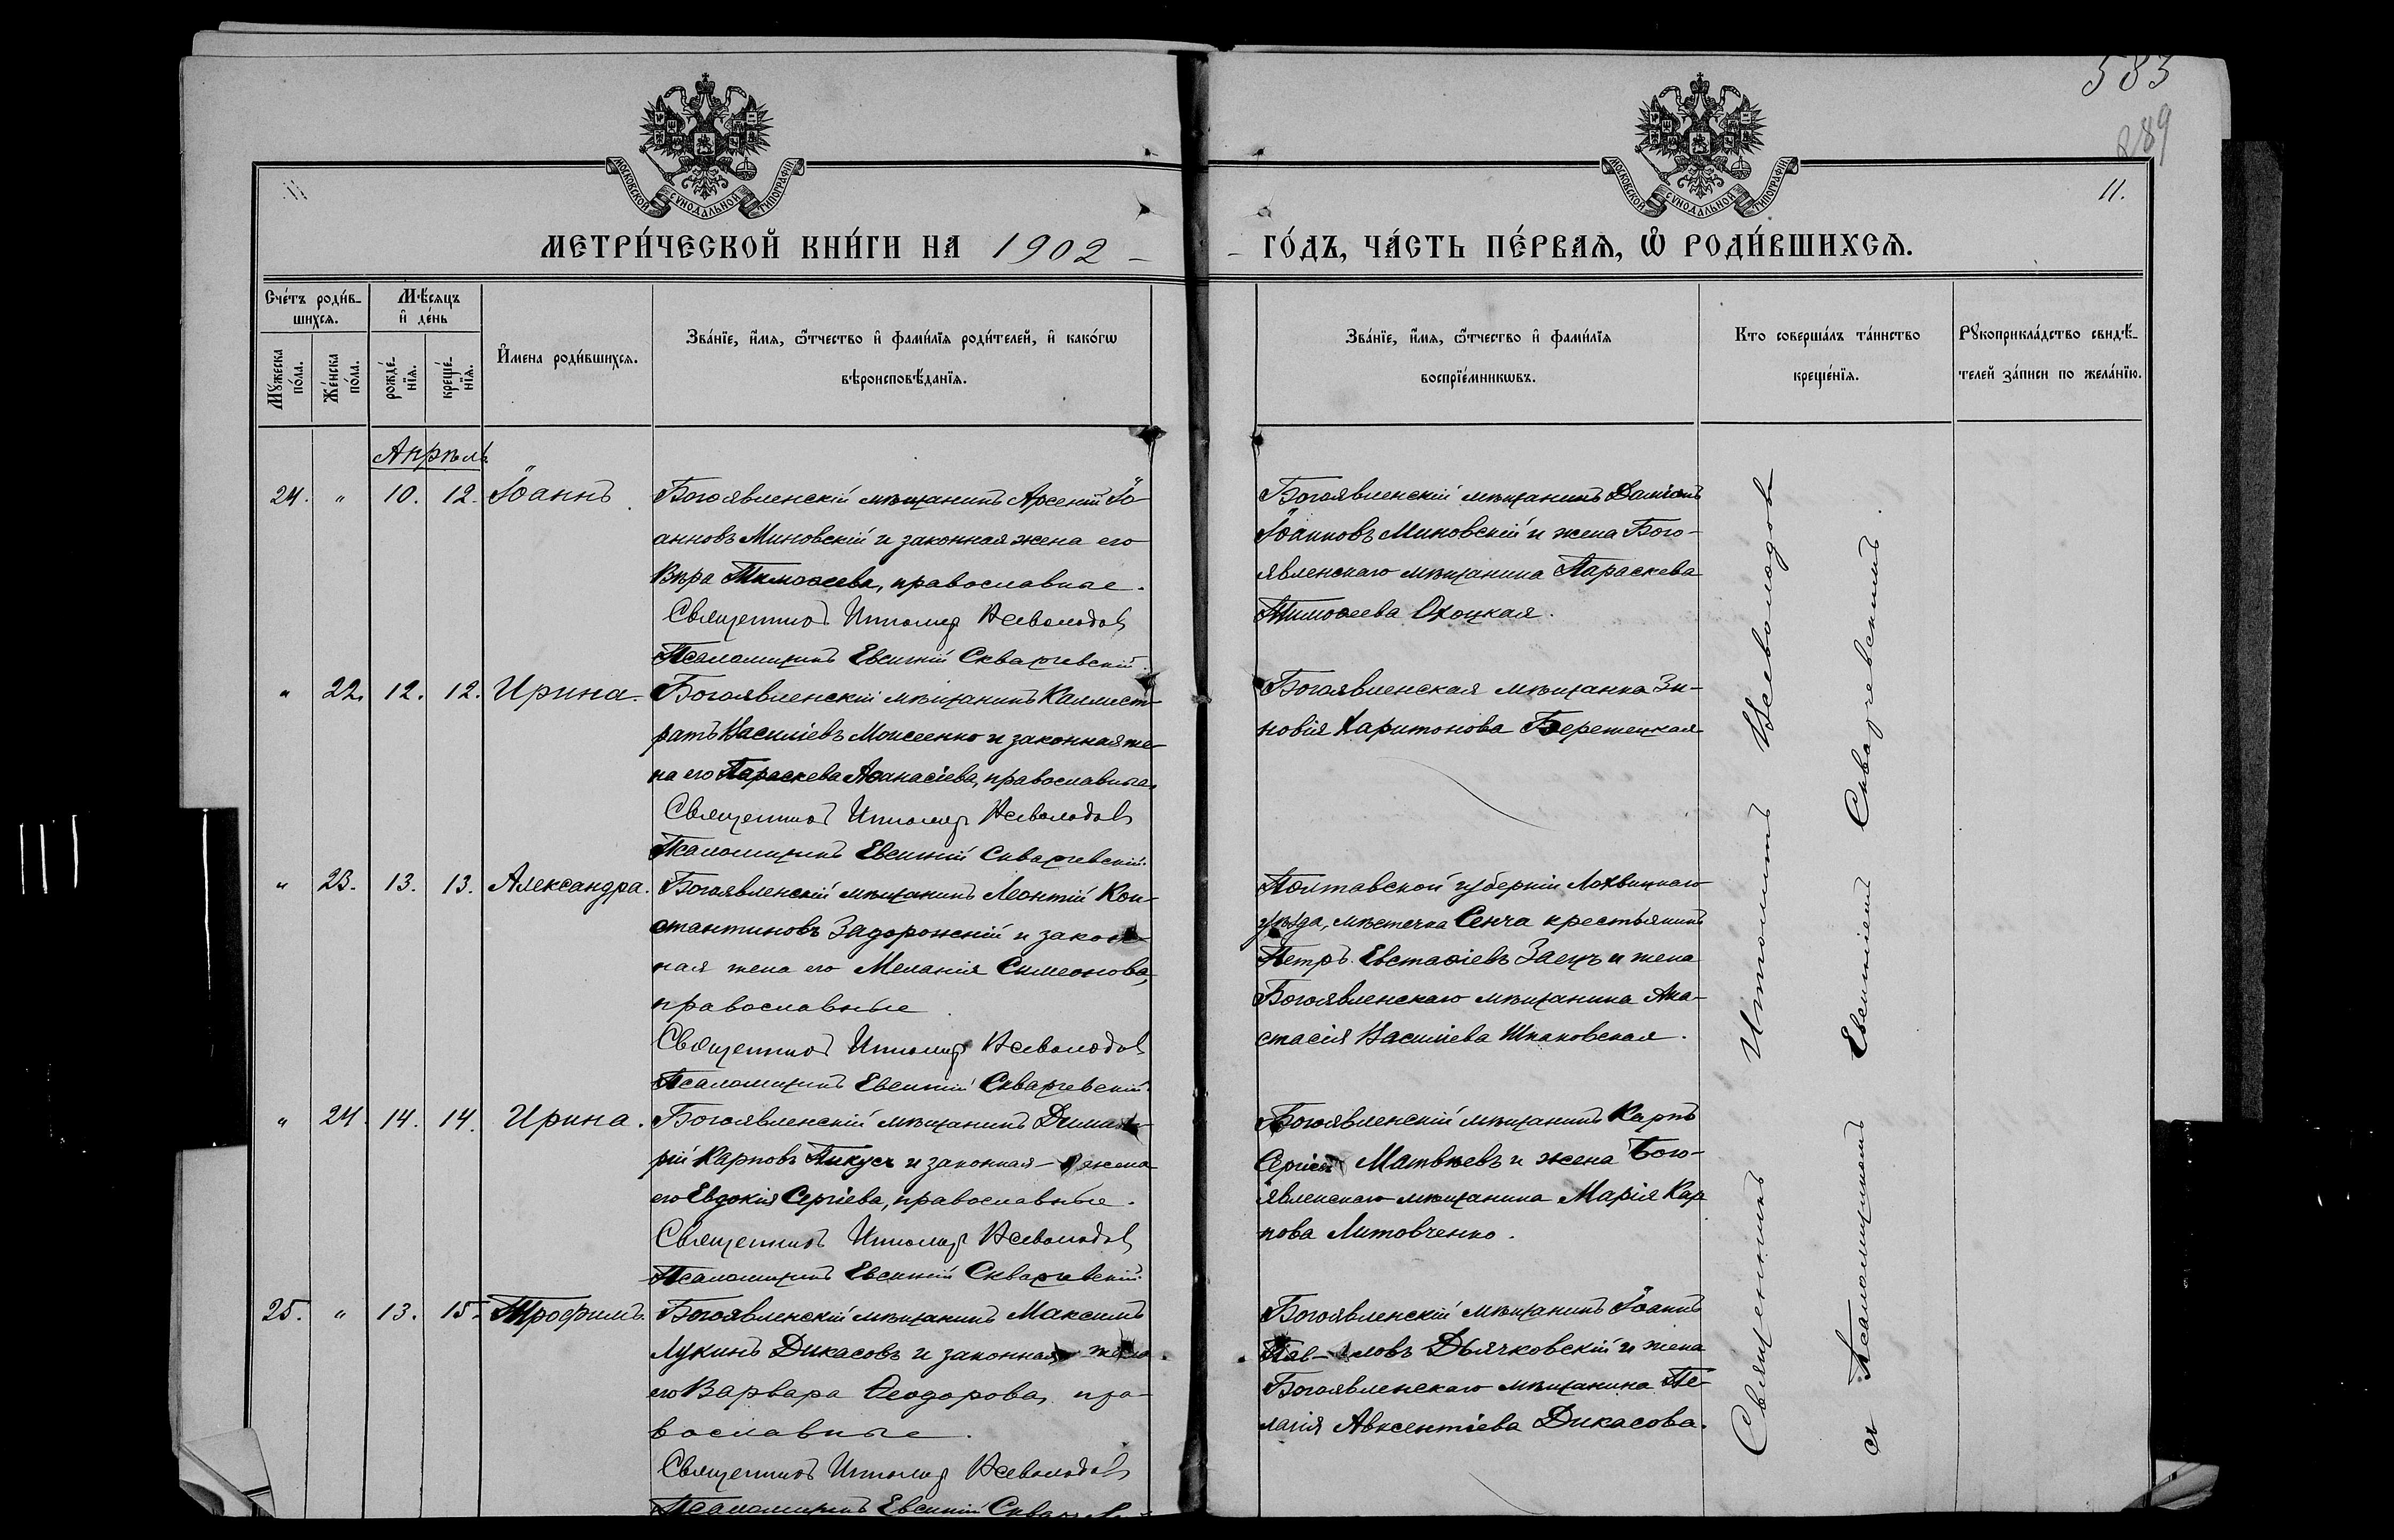 583
289
11.
МОСКОВСКОЙ СѴНОДАЛЬНОЙ ТИПОГРАФІИ
МОСКОВСКОЙ СѴНОДАЛЬНОЙ ТИПОГРАФІИ
МЕТРИ́ЧЕСКОЙ КНИ́ГИ НА 1902
ГО́ДЪ, ЧА́СТЬ ПЕ́РВАѦ, Ѡ҆ РОДИ́ВШИХСѦ.
Сче́тъ роди́в-
шихсѧ.
Мꙋ́жеска по́ла.
Же́нска по́ла.
Мѣ́сѧцъ
и҆ де́нь
рожде́-
нїѧ.
креще́-
нїѧ.
И҆мена роди́вшихсѧ.
Зва́нїе, и҆́мѧ, ѻ҆́тчество и҆ фами́лїѧ роди́телей, и҆ како́гѡ
вѣроисповѣ́данїѧ.
Зва́нїе, и҆́мѧ, ѻ҆́тчество и҆ фами́лїѧ
воспрїе́мникѡвъ.
Кто соверша́лъ та́инство
креще́нїѧ.
Рꙋкоприкла́дство свидѣ́-
телей за́писи по жела́нїю.
Апрѣль
24. " 10. 12. Іоаннъ
Богоявленскій мѣщанинъ Арсеній Іо-
анновъ Миновскій и законная жена его
Вѣра Тимоѳеева, православные.
Священникъ Ипполитъ Всеволодовъ
Псаломщикъ Евгеній Скваржевскій.
Богоявленскій мѣщанинъ Даміанъ
Іоанновъ Миновскій и жена Бого-
явленскаго мѣщанина Параскева
Тимоѳеева Охоцкая.
" 22. 12. 12. Ирина.
Богоявленскій мѣщанинъ Каллист-
ратъ Василіевъ Моисеенко и законная же-
на его Параскева Аѳанасіева, православные
Священникъ Ипполитъ Всеволодовъ
Псаломщикъ Евгеній Скваржевскій.
Богоявленская мѣщанка Зи-
новія Харитонова Березецкая
" 23. 13. 13. Александра.
Богоявленскій мѣщанинъ Леонтій Кон-
стантиновъ Задорожній и закон-
ная жена его Меланія Симеонова,
православные
Священникъ Ипполитъ Всеволодовъ
Псаломщикъ Евгеній Скваржевскій.
Полтавской губерніи Лохвицкаго
уѣзда, мѣстечка Сенча крестьянинъ
Петръ Евстафіевъ Заецъ и жена
Богоявленскаго мѣщанина Ана-
стасія Василіева Шпаковская.
" 24. 14. 14. Ирина.
Богоявленскій мѣщанинъ Димит-
рій Карповъ Пикусъ и законная жена
его Евдокія Сергіева, православные.
Священникъ Ипполитъ Всеволодовъ
Псаломщикъ Евгеній Скваржевскій.
Богоявленскій мѣщанинъ Карпъ
Сергіевъ Матвѣевъ и жена Бого-
явленскаго мѣщанина Марія Кар
пова Литовченко.
25. " 13. 15. Трофимъ.
Богоявленскій мѣщанинъ Максимъ
Лукинъ Дикасовъ и законная жена
его Варвара Ѳеодорова, пра-
вославные.
Священникъ Ипполитъ Всеволодовъ
Псаломщикъ Евгеній
Богоявленскій мѣщанинъ Іоаннъ
Пав-ловъ Дьячковскій и жена
Богоявленскаго мѣщанина Пе-
лагія Авксентіева Дикасова.
Священникъ Ипполитъ Всеволодовъ
съ Псаломщикомъ Евгеніемъ Скваржевскимъ.